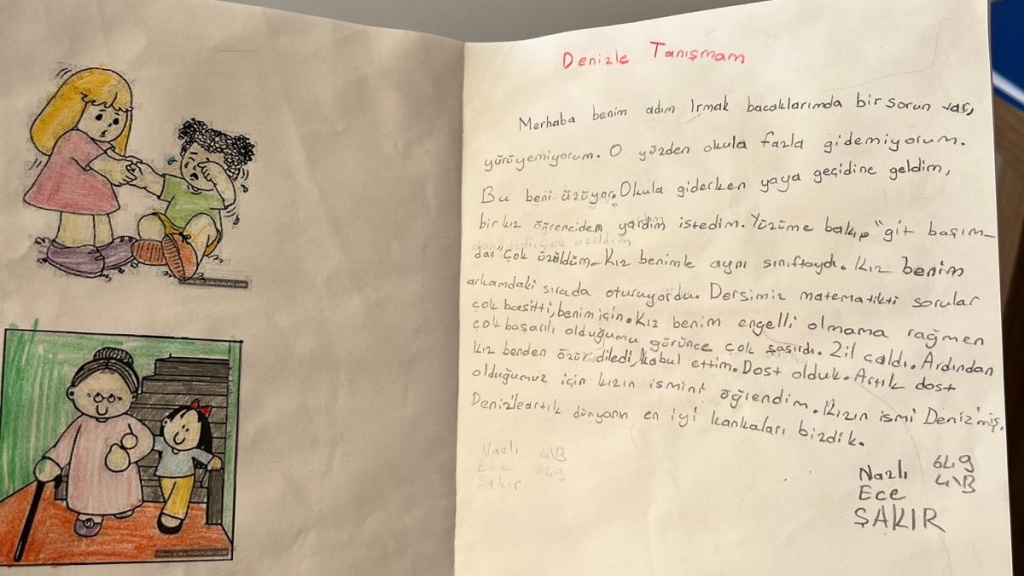 Denizle Tanışmam
Merhaba benim adım Irmak bacaklarımda bir sorun var,
yürüyemiyorum. O yüzden okula fazla gidemiyorum.
Bu beni üzüyor. Okula giderken yaya geçidine geldim,
bir kız öğrenciden yardım istedim. Yüzüme bakıp "git başım-
dan" Çok üzüldüm. Kız benimle aynı sınıftaydı. Kız benim
arkamdaki sırada oturuyordu. Dersimiz matematikti sorular
çok basitti, benim için. Kız benim engelli olmama rağmen
çok başarılı olduğumu görünce çok şaşırdı. Zil çaldı. Ardından
kız benden özür diledi, kabul ettim. Dost olduk. Artık dost
olduğumuz için kızın ismini öğrendim. Kızın ismi Deniz'miş.
Denizle artık dünyanın en iyi kankaları bizdik.
Nazlı 4\B
Ece 649
Şakır
649
Nazlı 4\B
Ece
ŞAKIR